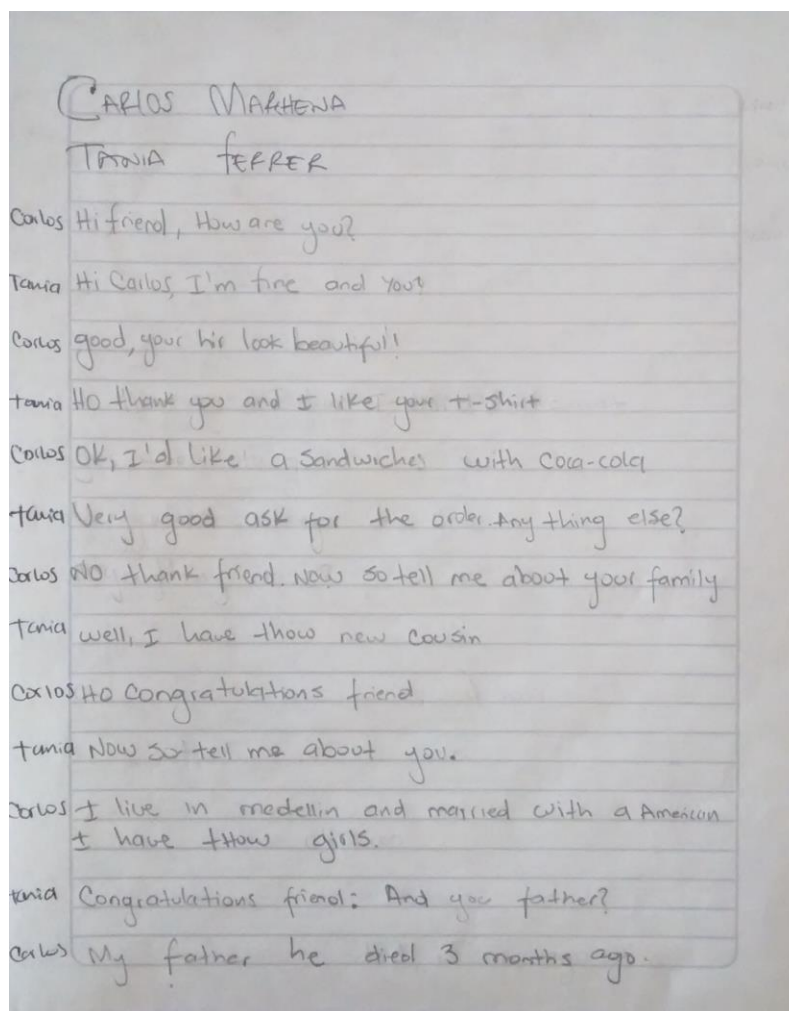 CARLOS MARHENA
TANIA FERRER
Carlos Hi friend, How are you?
Tania Hi Carlos, I'm fine and you?
Carlos good, your hir look beautiful!
tania HO thank you and I like your t-shirt
Carlos OK, I'd like a Sandwiches with Coca-cola
tania Very good ask for the order. Any thing else?
Carlos NO thank friend. Now so tell me about your family
Tania well, I have thow new cousin
Carlos HO Congratulations friend
tania Now so tell me about you.
Carlos I live in medellin and married with a American
I have tHow girls.
tania Congratulations friend: And you father?
Carlos My father he died 3 months ago.